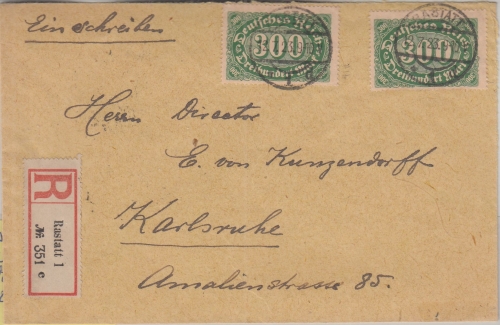 Einschreiben
Deutsches Reich
300
Dreihundert Mark
Deutsches Reich
300
Dreihundert Mark
RASTATT
Herrn Director
E. von Kunzendorff
Karlsruhe
Amalienstrasse 85.
R
Rastatt 1
№ 351 e